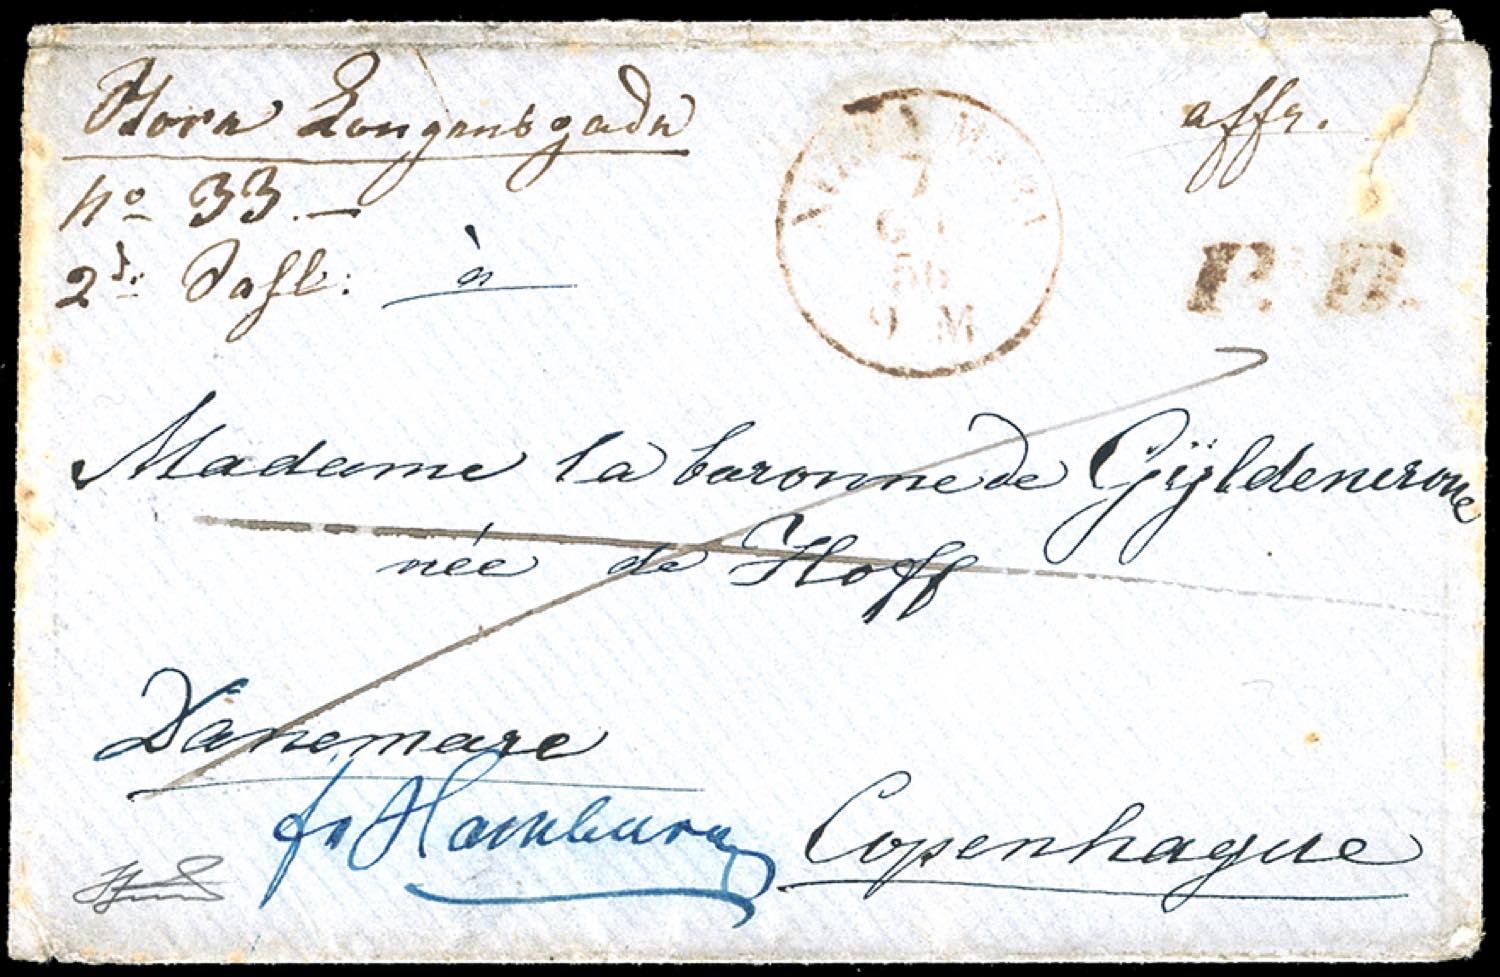 Store Kongensgade
affr.
no 33.—
2d. Sahl: à
7
56
9 M
P. D.
Madame la baronne de Gÿldencrone
née de Hoff
Danemarc
fr Hamburg
Copenhague